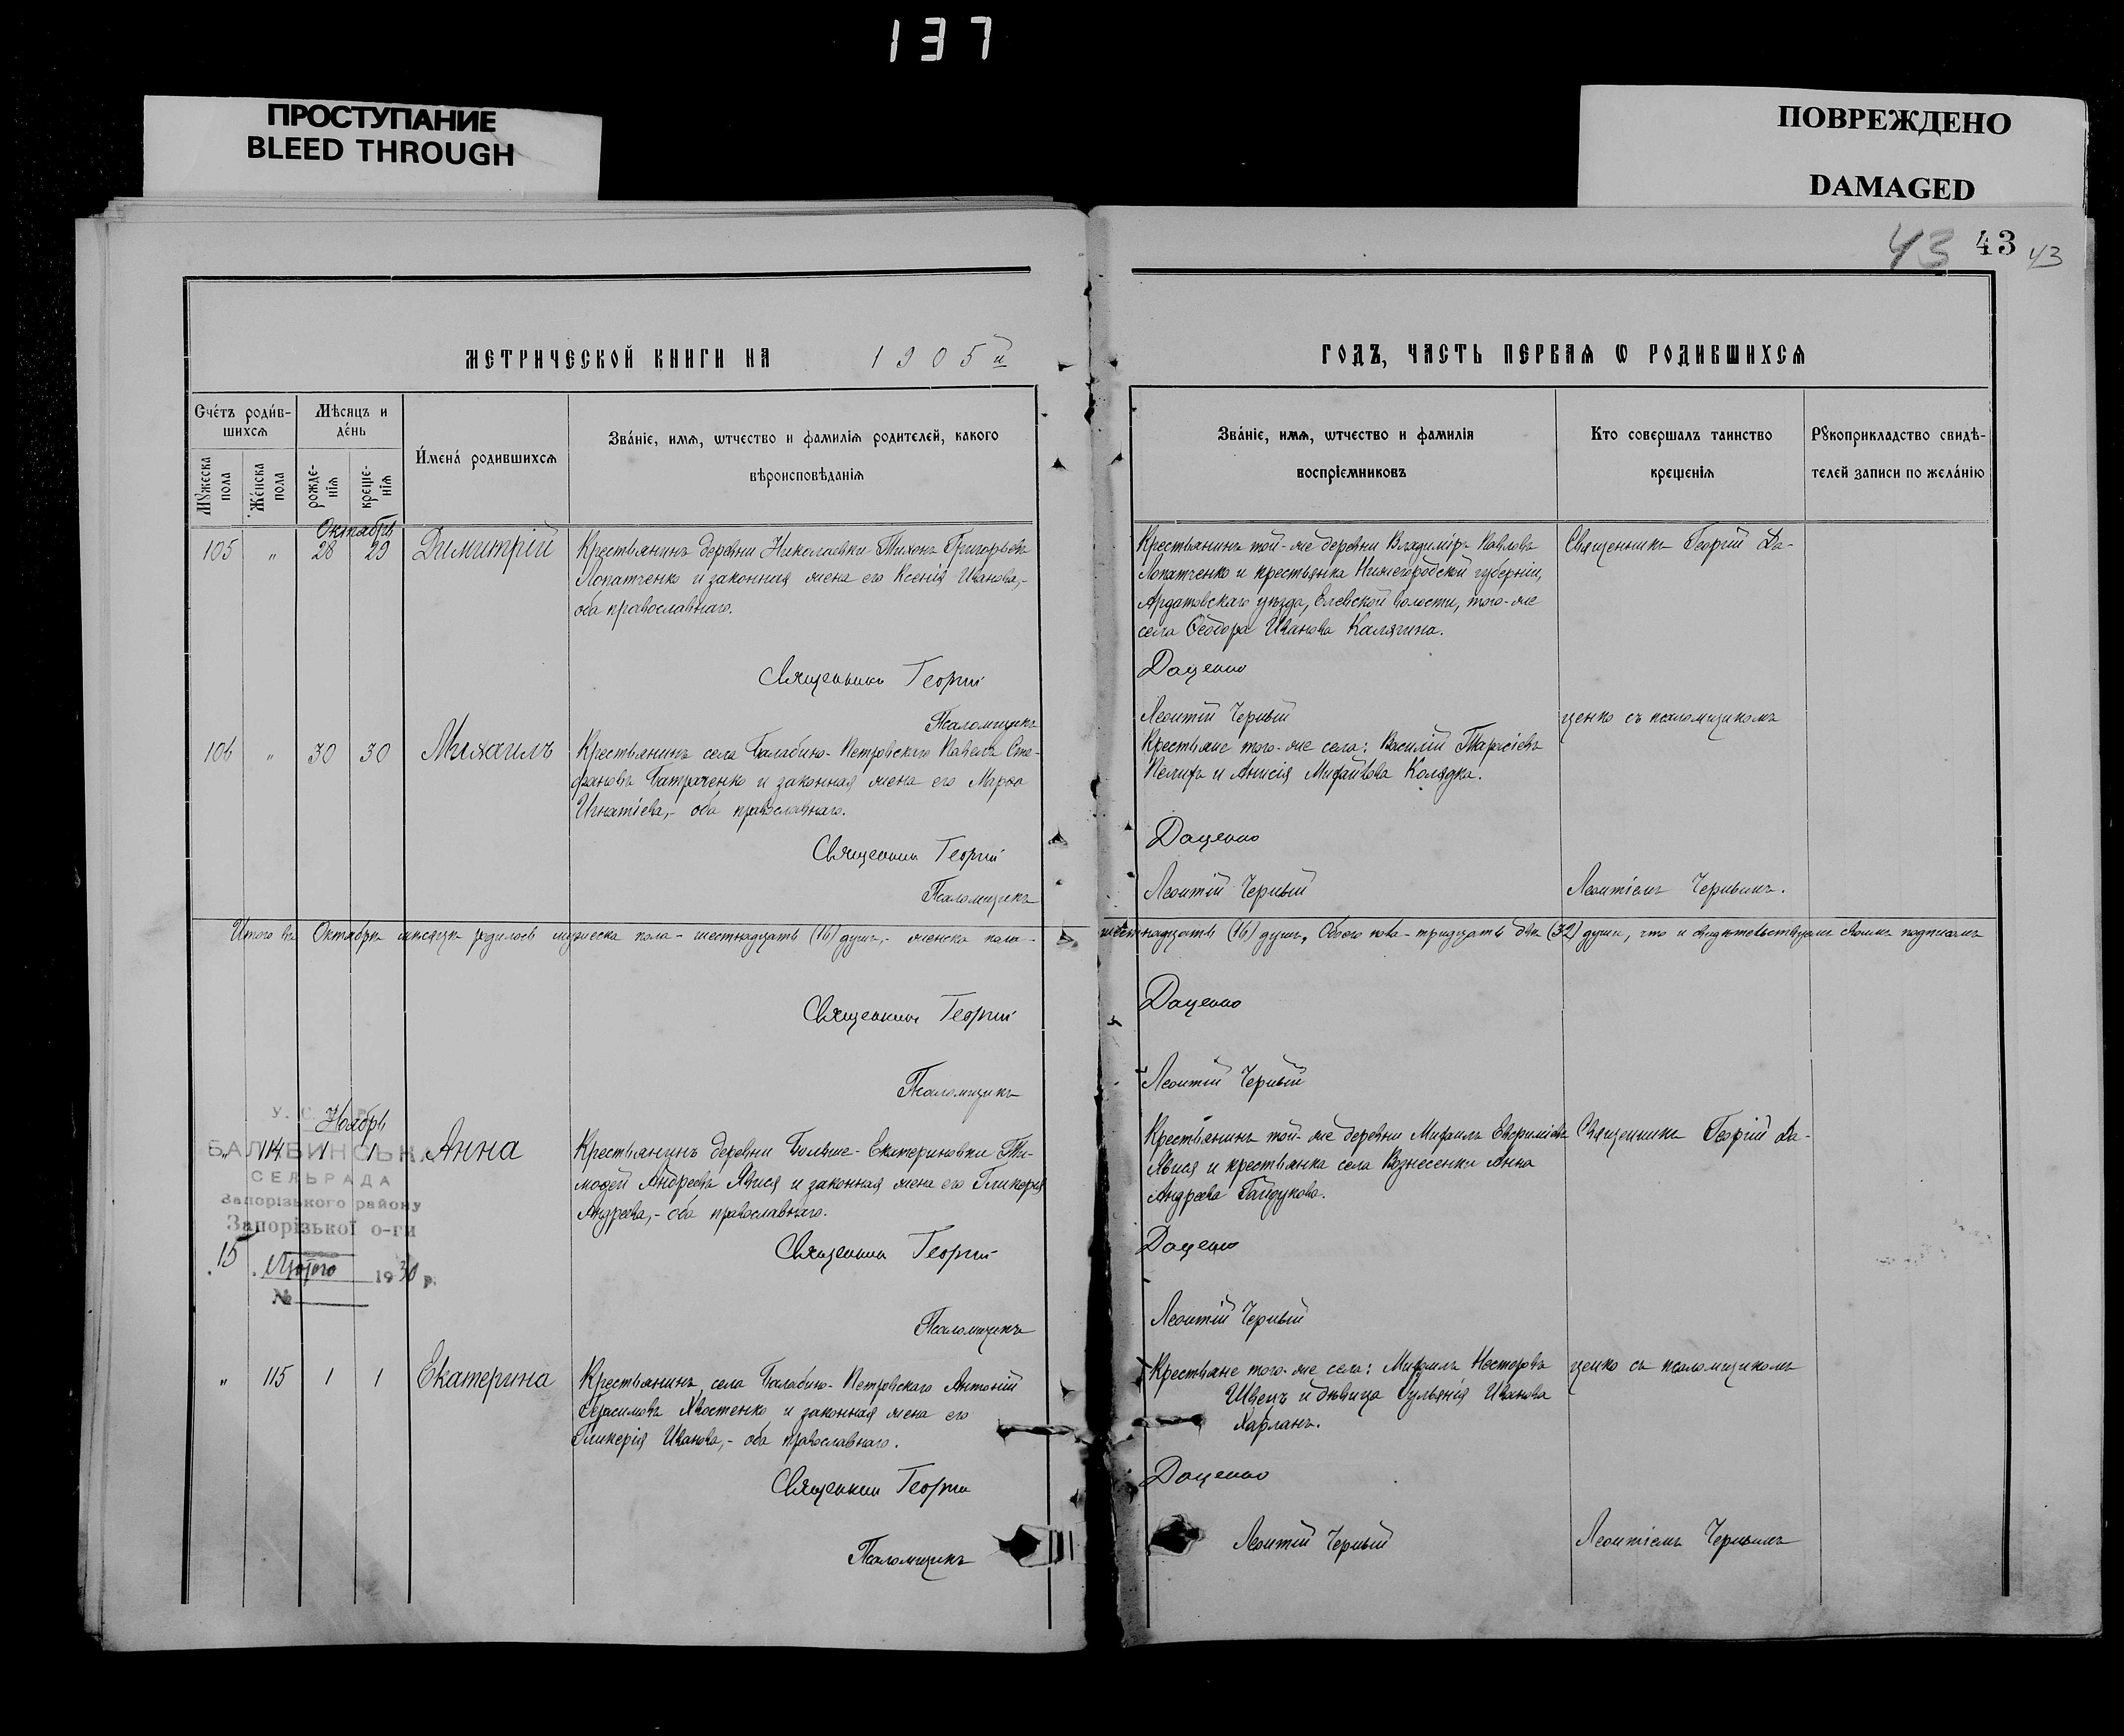 137
ПРОСТУПАНИЕ
BLEED THROUGH
ПОВРЕЖДЕНО
DAMAGED
43 43 43
МЕТРИЧЕСКОЙ КНИГИ НА 1905й
ГОДЪ, ЧАСТЬ ПЕРВАЯ Ѡ РОДИВШИХСЯ
Счетъ родив-
шихся
Мѣсяцъ и
день
Имена родившихся
Званіе, имя, ѿтчество и фамилія родителей, какого
вѣроисповѣданія
Мужеска
пола
Женска
пола
рожде-
нія
креще-
нія
Званіе, имя, ѿтчество и фамилія
воспріемниковъ
Кто совершалъ таинство
крещенія
Рукоприкладство свидѣ-
телей записи по желанію
Октябрь
105 " 28 29 Димитрій
Крестьянинъ деревни Николаевки Тихонъ Григорьевъ
Лопатченко и законная жена его Ксенія Иванова,-
оба православнаго.
Священникъ Георгій
Псаломщикъ
Крестьянинъ той-же деревни Владиміръ Павловъ
Лопатченко и крестьянка Нижегородской губерніи,
Ардатовскаго уѣзда, волости, того-же
села Ѳеодора Иванова Калягина.
Даценко
Леонтій Черный
Священникъ Георгій Да-
ценко съ псаломщикомъ
106 " 30 30 Михаилъ
Крестьянинъ села Балабино-Петровскаго Павелъ Сте-
фановъ Батраченко и законная жена его Марѳа
Игнатіева,- оба православнаго.
Священникъ Георгій
Псаломщикъ
Крестьяне того-же села: Василій Тарасіевъ
и Анисія Михайлова Колядка.
Даценко
Леонтій Черный
Леонтіемъ Чернымъ.
Итого въ Октябрѣ мѣсяцѣ родилось мужеска пола - шестнадцать (16) душъ,- женска пола -
шестнадцать (16) душъ, Обоего пола - тридцать двѣ (32) души, что и свидѣтельствуемъ своимъ подписомъ
Священникъ Георгій
Псаломщикъ
Даценко
Леонтій Черный
У. С.
БАЛАБИНСЬКА
СЕЛЬРАДА
Запорізького району
Запорізької о-ги
15 Лютого 1930 р.
№
Ноябрь
" 114 1 1 Анна
Крестьянинъ деревни Больше-Екатериновки Ти-
моѳей Андреевъ Явися и законная жена его Гликерія
Андреева,- оба православнаго.
Священникъ Георгій
Псаломщикъ
Крестьянинъ той-же деревни Михаилъ Евѳиміевъ
Явися и крестьянка села Вознесенки Анна
Андреева Гайдукова.
Даценко
Леонтій Черный
Священникъ Георгій Да-
ценко съ псаломщикомъ
" 115 1 1 Екатерина
Крестьянинъ села Балабино-Петровскаго Антоній
Герасимовъ Хвостенко и законная жена его
Гликерія Иванова,- оба православнаго.
Священникъ Георгій
Псаломщикъ
Крестьяне того-же села: Михаилъ Несторовъ
Швецъ и дѣвица Іульянія Иванова
Харланъ.
Даценко
Леонтій Черный
Леонтіемъ Чернымъ